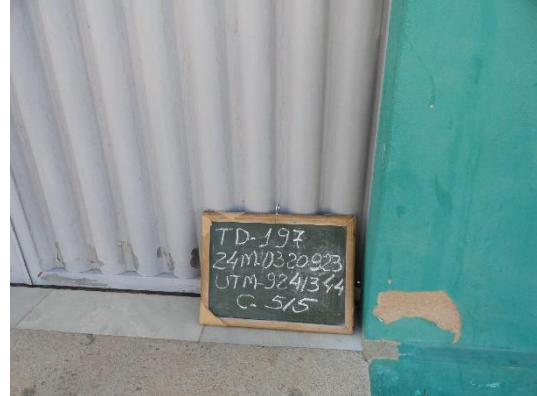 TD-197
24M/0320923
UTM-9241344
C-5/5